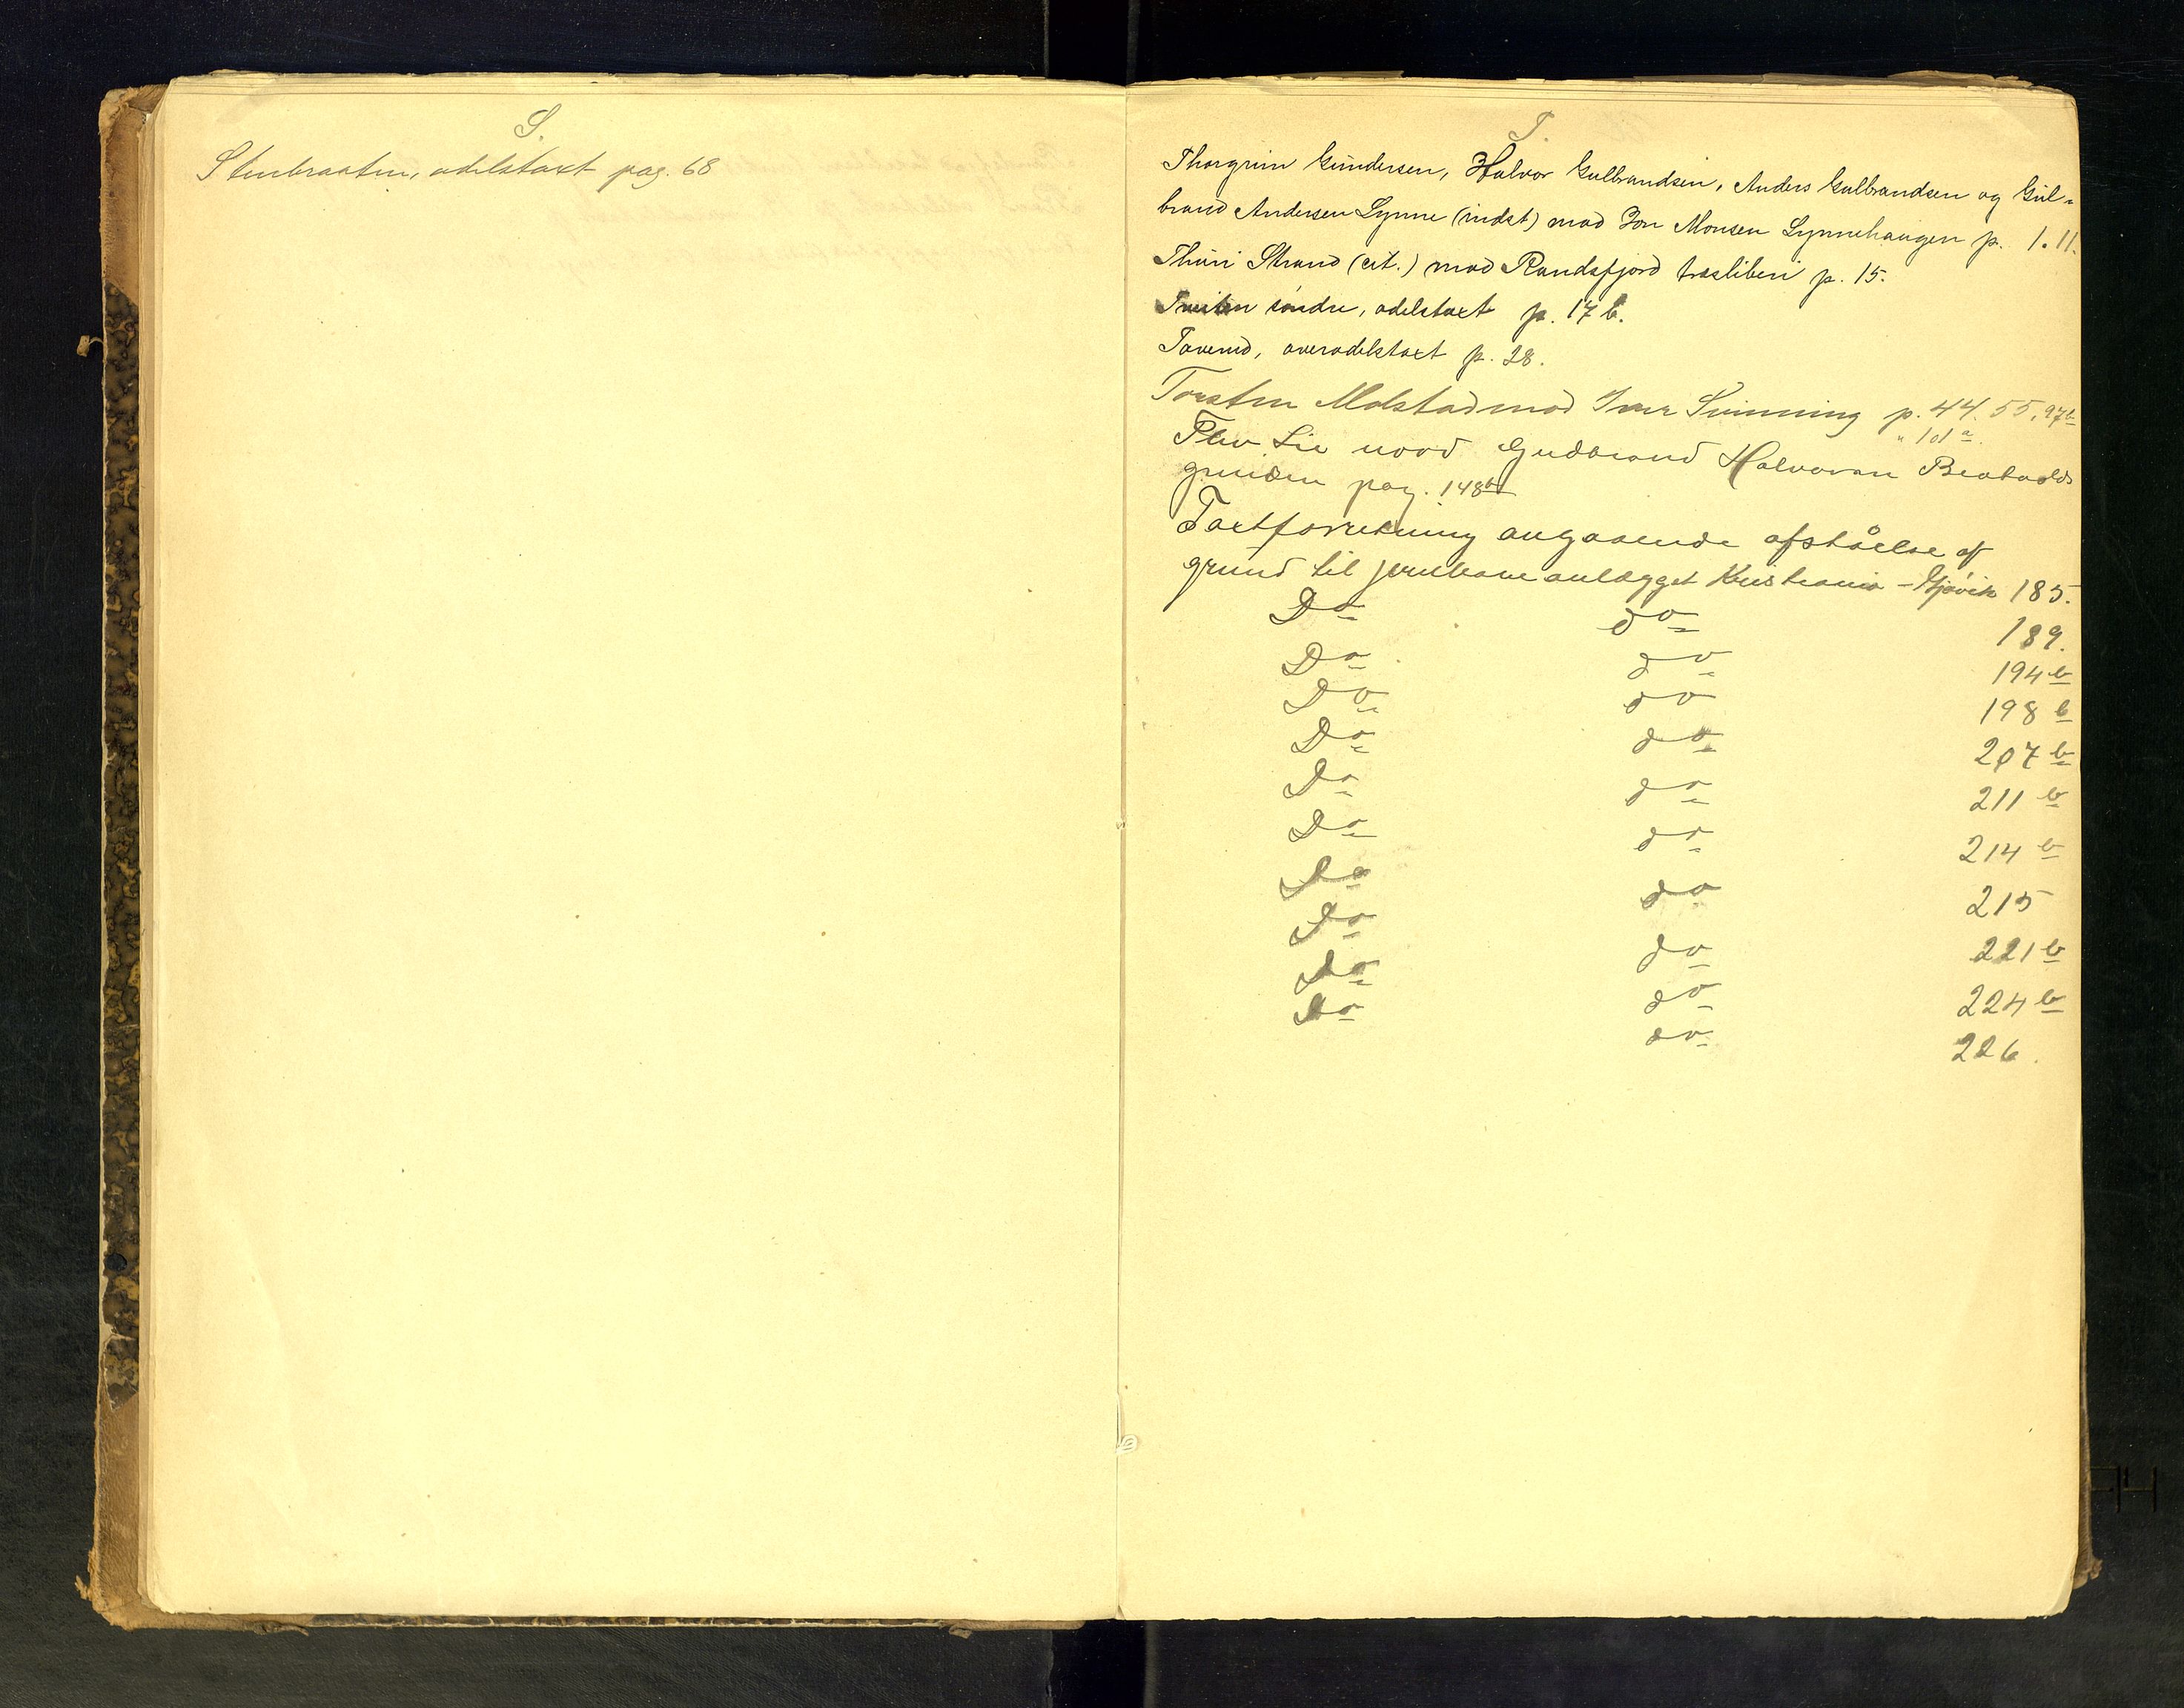 S.
Stenbraaten, odelstaxt pag. 68
T.
Thorgrim Gundersen, Halvor Gulbrandsen, Anders Gulbrandsen og Gul-
brand Andersen Lynne (indst) mod Jon Monsen Lynnehaugen p. 1. 11.
Thuri Strand (cit.) mod Randsfjord træsliberi p. 15.
søndre, odelstaxt p. 17 b.
overodelstaxt p. 28.
Torsten Molstad mod Iver Svinning p. 44. 55. 97b
" 101 a.
Lie mod Gudbrand Halvorsen
pag. 148b
Taxtforretning angaaende afståelse af
grund til jernbaneanlægget Kristiania - Gjøvik 185.
Do do 189.
Do do 194 b
Do do 198 b
Do do 207 b
Do do 211 b
Do do 214 b
Do do 215
Do do 221 b
Do do 224 b
Do do 226.